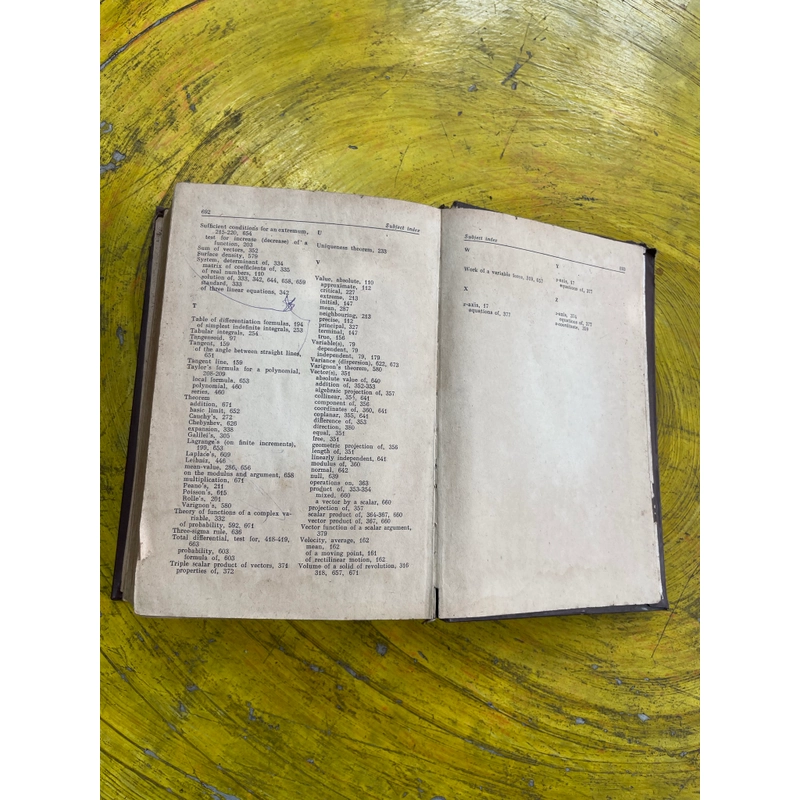 692
Subject index
Sufficient conditions for an extremum,
215-220, 654
test for increase (decrease) of a
function, 203
Sum of vectors, 352
Surface density, 579
System, determinant of, 334
matrix of coefficients of, 335
of real numbers, 110
solution of, 333, 342, 644, 658, 659
standard, 333
of three linear equations, 342
T
Table of differentiation formulas, 194
of simplest indefinite integrals, 253
Tabular integrals, 254
Tangensoid, 97
Tangent, 159
of the angle between straight lines,
651
Tangent line, 159
Taylor's formula for a polynomial,
208-209
local formula, 653
polynomial, 460
series, 460
Theorem
addition, 671
basic limit, 652
Cauchy's, 272
Chebyshev, 626
expansion, 338
Galilei's, 305
Lagrange's (on finite increments),
199, 653
Laplace's, 609
Leibniz, 446
mean-value, 286, 656
on the modulus and argument, 658
multiplication, 671
Peano's, 211
Poisson's, 615
Rolle's, 201
Varignon's, 580
Theory of functions of a complex va-
riable, 332
of probability, 592, 671
Three-sigma rule, 636
Total differential, test for, 418-419,
663
probability, 603
formula of, 603
Triple scalar product of vectors, 371
properties of, 372
U
Uniqueness theorem, 233
V
Value, absolute, 110
approximate, 112
critical, 227
extreme, 213
initial, 147
mean, 287
neighbouring, 213
precise, 112
principal, 327
terminal, 147
true, 156
Variable(s), 79
dependent, 79
independent, 79, 179
Variance (dispersion), 622, 673
Varignon's theorem, 580
Vector(s), 351
absolute value of, 640
addition of, 352-353
algebraic projection of, 357
collinear, 351, 641
component of, 356
coordinates of, 360, 641
coplanar, 355, 641
difference of, 353
direction, 380
equal, 351
free, 351
geometric projection of, 356
length of, 351
linearly independent, 641
modulus of, 360
normal, 642
null, 639
operations on, 363
product of, 353-354
mixed, 660
a vector by a scalar, 660
projection of, 357
scalar product of, 364-367, 660
vector product of, 367, 660
Vector function of a scalar argument,
379
Velocity, average, 162
mean, 162
of a moving point, 161
of rectilinear motion, 162
Volume of a solid of revolution, 316
318, 657, 671
Subject index
693
W
Work of a variable force, 319, 657
X
x-axis, 17
equations of, 377
Y
y-axis, 17
equations of, 377
Z
z-axis, 376
equations of, 377
z-coordinate, 358